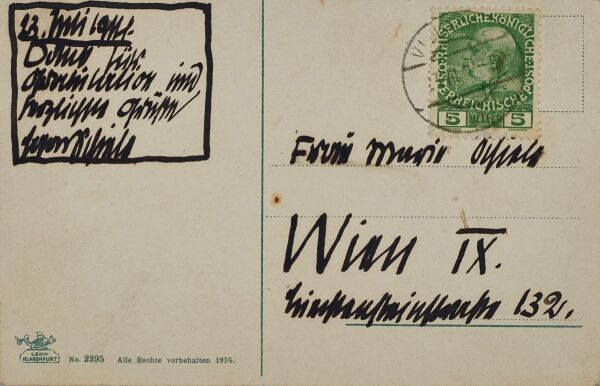 23. Juli 1914.
Danke für
Gratulation und
herzliche Grüße
Egon Schiele
KAISERLICHE KÖNIGLICHE
ÖSTERREICHISCHE POST
5 HELLER 5
Frau Marie Schiele
Wien IX.
Liechtensteinstrasse 132.
LEON
KLAGENFURT
No. 2395 Alle Rechte vorbehalten 1914.